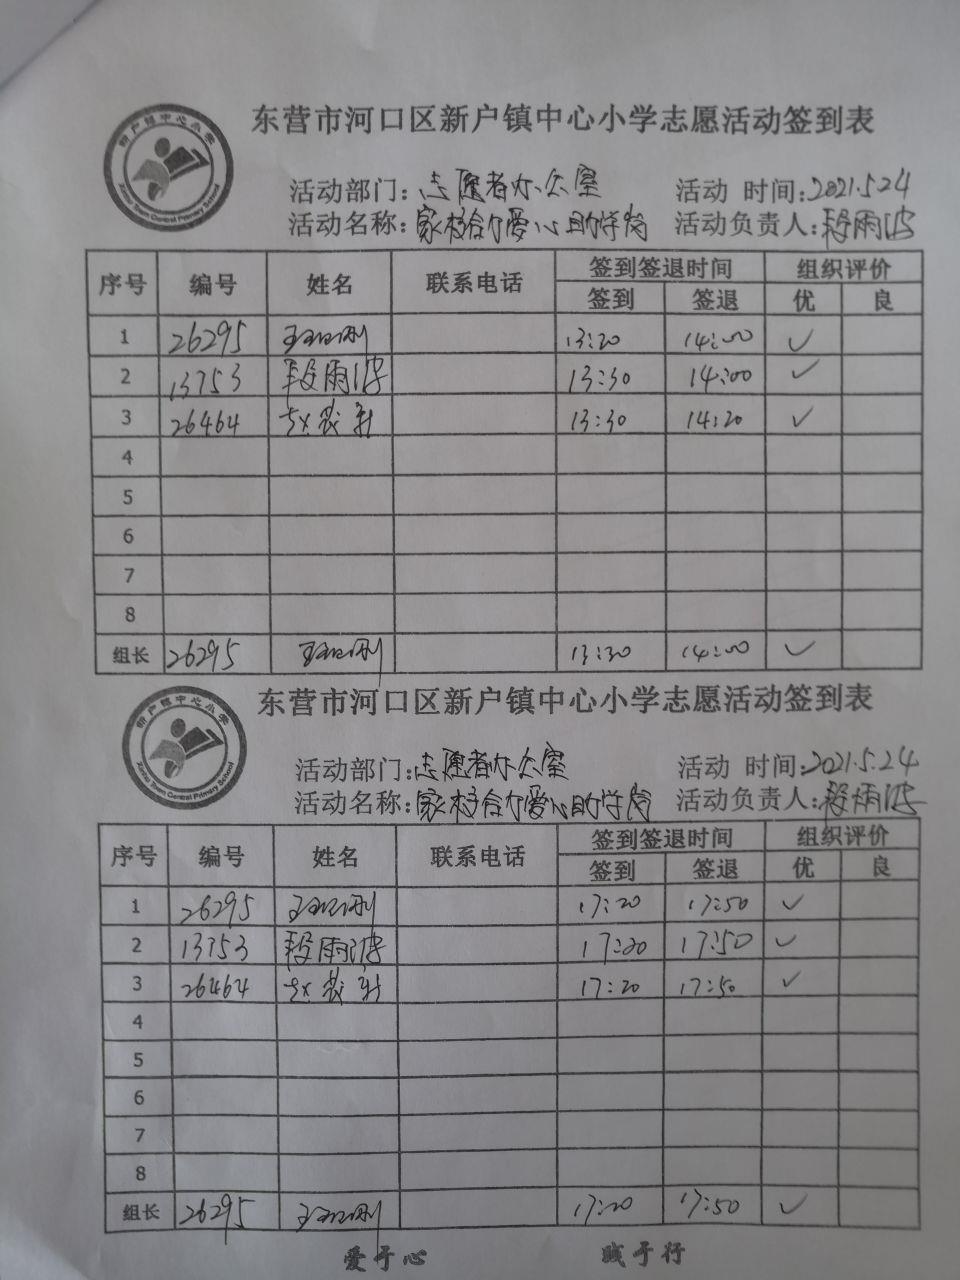 东营市河口区新户镇中心小学志愿活动签到表
新户镇中心小学
Xinhu Town Central Primary School
活动部门：志愿者办公室 活动 时间：2021.5.24
活动名称：家校合力爱心助学岗 活动负责人：段雨洪
序号 编号 姓名 联系电话 签到签退时间 组织评价
签到 签退 优 良
1 26295 13:20 14:00 ✓
2 13753 段雨洪 13:30 14:00 ✓
3 26464 13:30 14:20 ✓
4
5
6
7
8
组长 26295 13:30 14:00 ✓
东营市河口区新户镇中心小学志愿活动签到表
新户镇中心小学
Xinhu Town Central Primary School
活动部门：志愿者办公室 活动 时间：2021.5.24
活动名称：家校合力爱心助学岗 活动负责人：段雨洪
序号 编号 姓名 联系电话 签到签退时间 组织评价
签到 签退 优 良
1 26295 17:20 17:50 ✓
2 13753 段雨洪 17:20 17:50 ✓
3 26464 17:20 17:50 ✓
4
5
6
7
8
组长 26295 17:20 17:50 ✓
爱于心 践于行